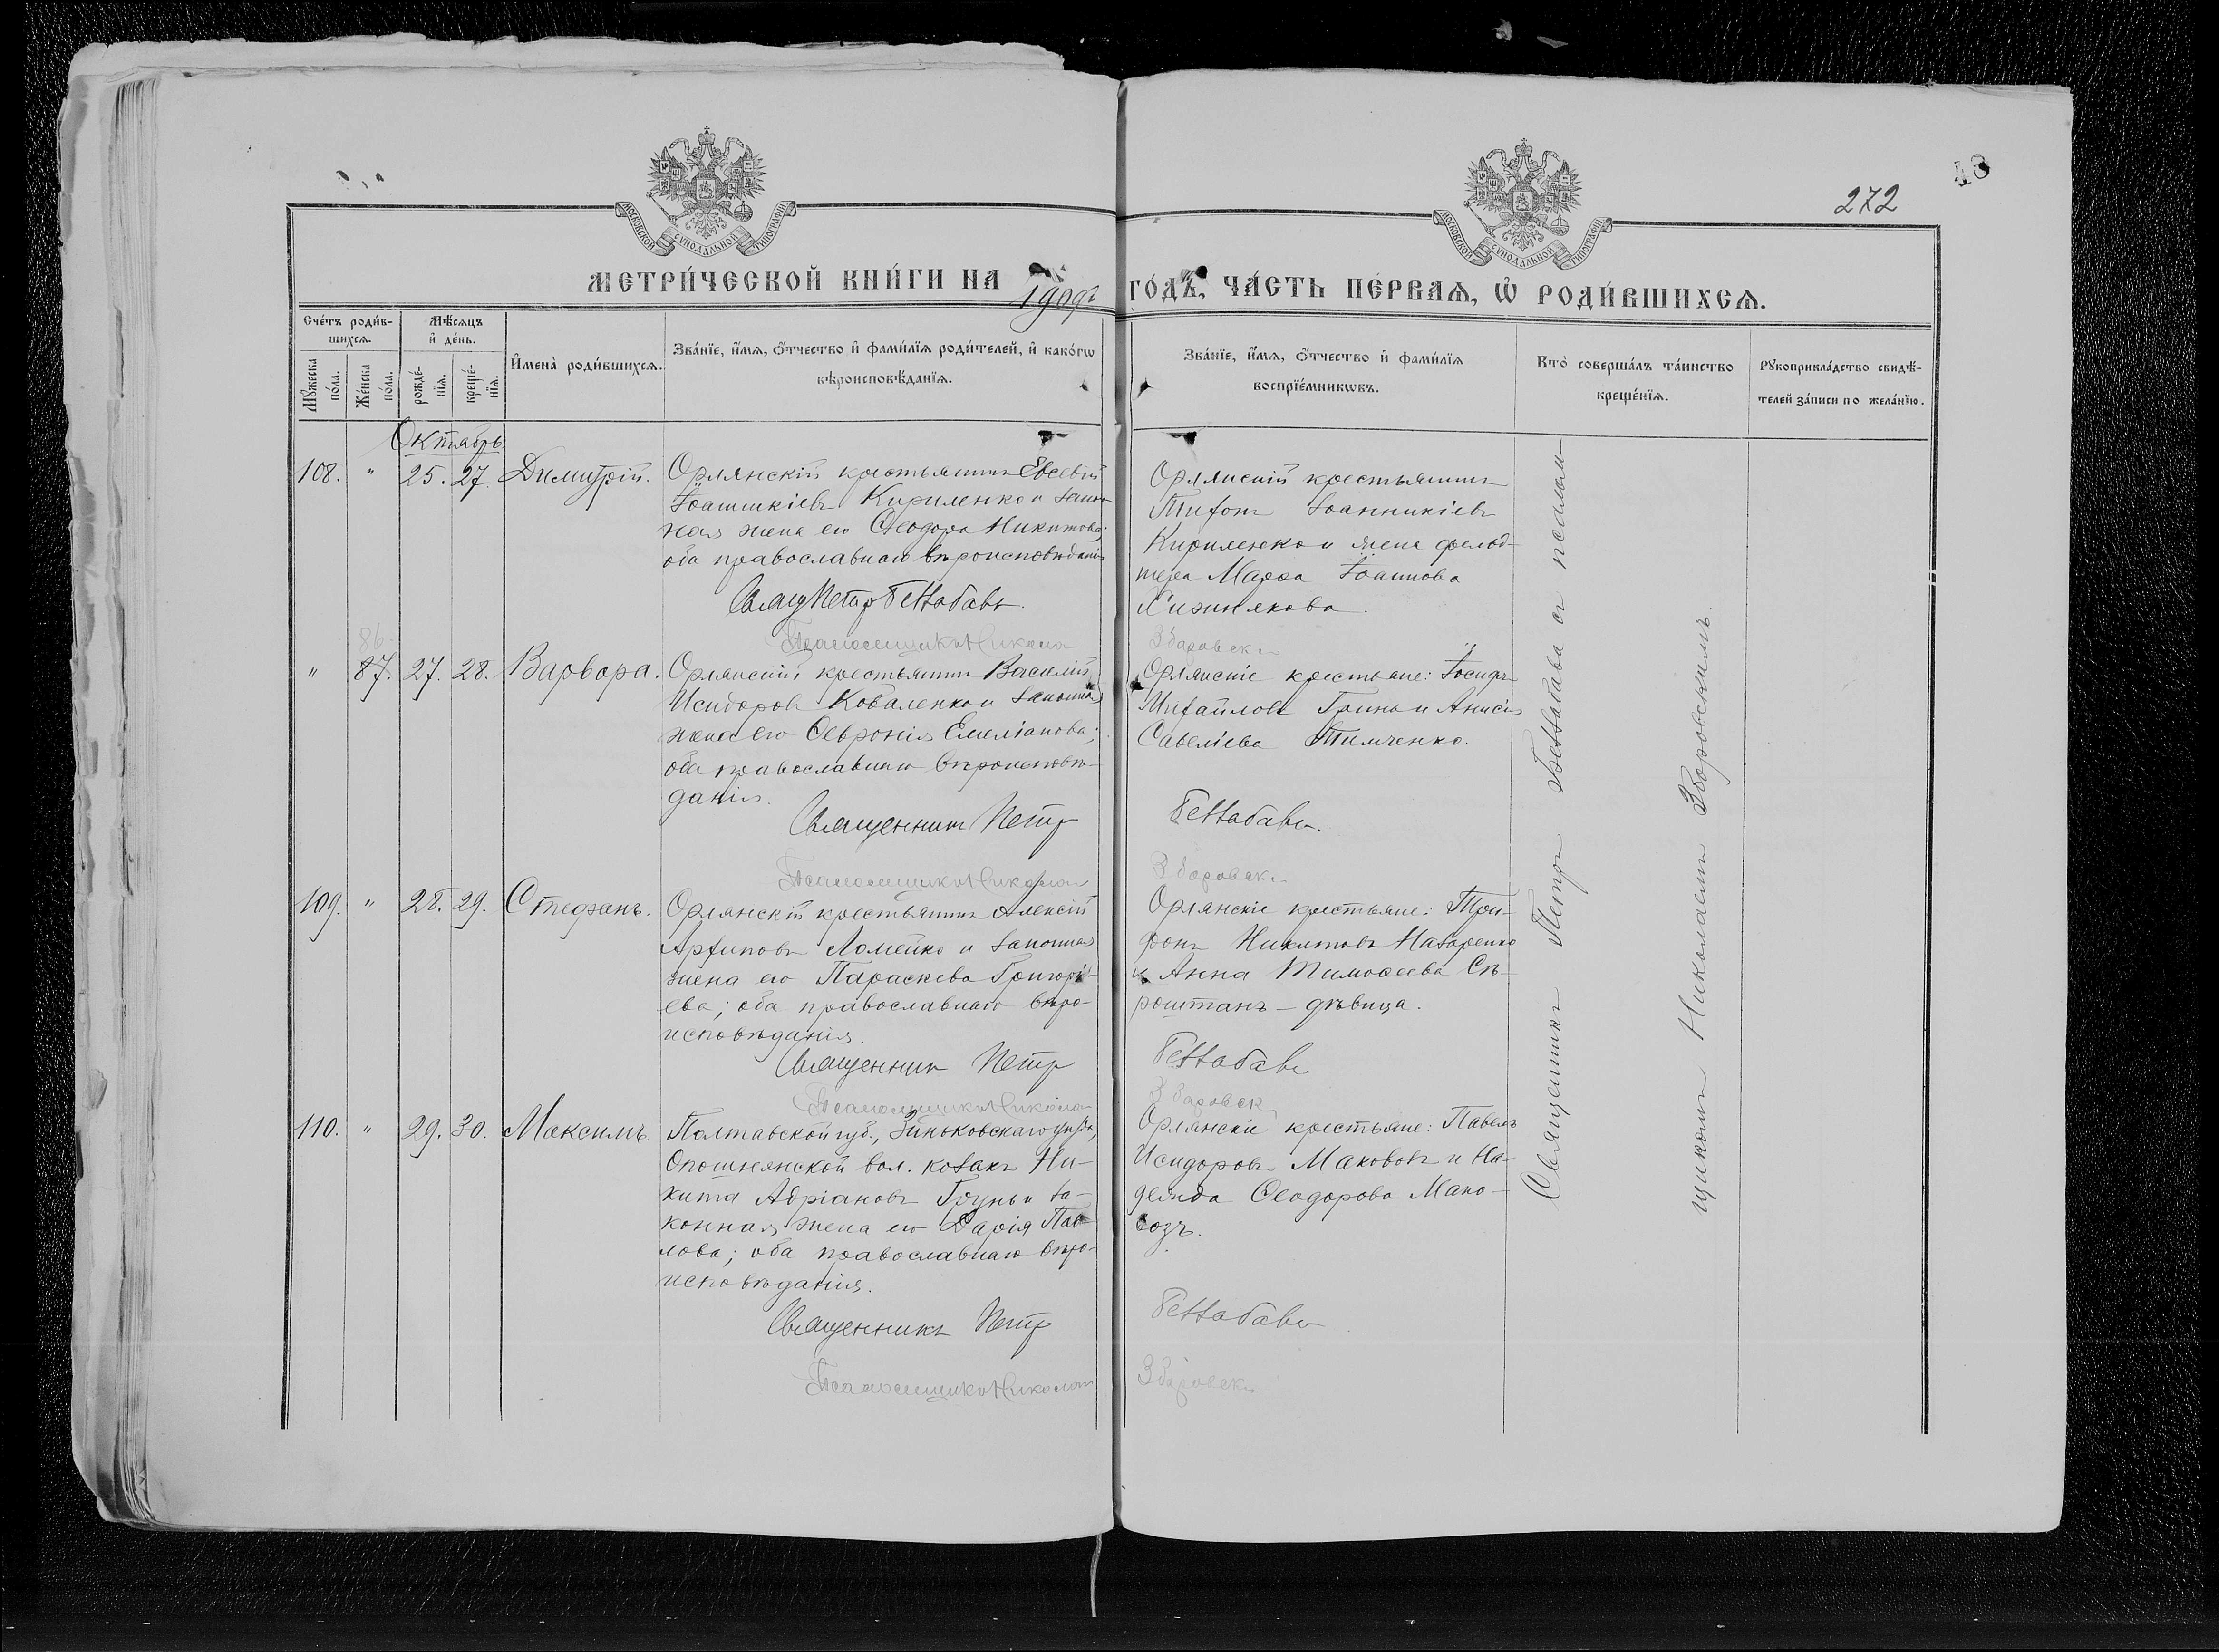 48
272
МОСКОВСКОЙ СУНОДАЛЬНОЙ ТИПОГРАФІИ
МОСКОВСКОЙ СУНОДАЛЬНОЙ ТИПОГРАФІИ
МЕТРИ́ЧЕСКОЙ КНИ́ГИ НА 1909 г. ГО́ДЪ, ЧА́СТЬ ПЕ́РВАѦ, Ѡ҆ РОДИ́ВШИХСѦ.
Сче́тъ роди́в-
шихсѧ.
Мꙋжеска по́ла.
Же́нска по́ла.
Мѣ́сѧцъ
и҆ де́нь.
рожде́-
нїѧ.
креще́-
нїѧ.
И҆мена̀ роди́вшихсѧ.
Зва́нїе, и҆́мѧ, ѻ҆́тчество и҆ фами́лїѧ роди́телей, и҆ како́гѡ
вѣроисповѣ́данїѧ.
Зва́нїе, и҆́мѧ, ѻ҆́тчество и҆ фами́лїѧ
воспрїе́мникѡвъ.
Кто̀ соверша́лъ та́инство
креще́нїѧ.
Рꙋкоприкла́дство свидѣ́-
телей за́писи по жела́нїю.
Октябрь
108. " 25. 27. Димитрій.
Орлянскій крестьянинъ Евсевій
Іоанникіевъ Кириленко и закон-
ная жена его Ѳеодора Никитова;
оба православнаго вѣроисповѣданія
Свящ Петръ Беззабава.
Псаломщикъ Николай
Орлянскій крестьянинъ
Тихонъ Іоанникіевъ
Кириленко и жена фельд-
шера Марѳа Іоаннова
Хижнякова.
Зборовскій
86.
" 87. 27. 28. Варвара.
Орлянскій крестьянинъ Василій
Исидоровъ Коваленко и законная
жена его Ѳевронія Емеліанова;
оба православнаго вѣроисповѣ-
данія.
Священникъ Петръ
Псаломщикъ Николай
Орлянскіе крестьяне: Іосифъ
Михайловъ Гринь и Анисія
Савеліева Тимченко.
Беззабава.
Зборовскій
109. " 28. 29. Стефанъ.
Орлянскій крестьянинъ Алексій
Архиповъ Ломейко и законная
жена его Параскева Григорі-
ева; оба православнаго вѣро-
исповѣданія.
Священникъ Петръ
Псаломщикъ Николай
Орлянскіе крестьяне: Три-
фонъ Никитовъ Назаренко
и Анна Тимоѳеева Сѣ-
роштанъ - дѣвица.
Беззабава
Зборовскій
110. " 29. 30. Максимъ.
Полтавской губ., Зѣньковскаго уѣзда,
Опошнянской вол. козакъ Ни-
кита Адріановъ Грунь и за-
конная жена его Дарія Пав-
лова; оба православнаго вѣро-
исповѣданія.
Священникъ Петръ
Псаломщикъ Николай
Орлянскіе крестьяне: Павелъ
Исидоровъ Маковозъ и На-
дежда Ѳеодорова Мако-
возъ.
Беззабава
Зборовскій
Священникъ Петръ Беззабава съ псалом-
щикомъ Николаемъ Зборовскимъ.